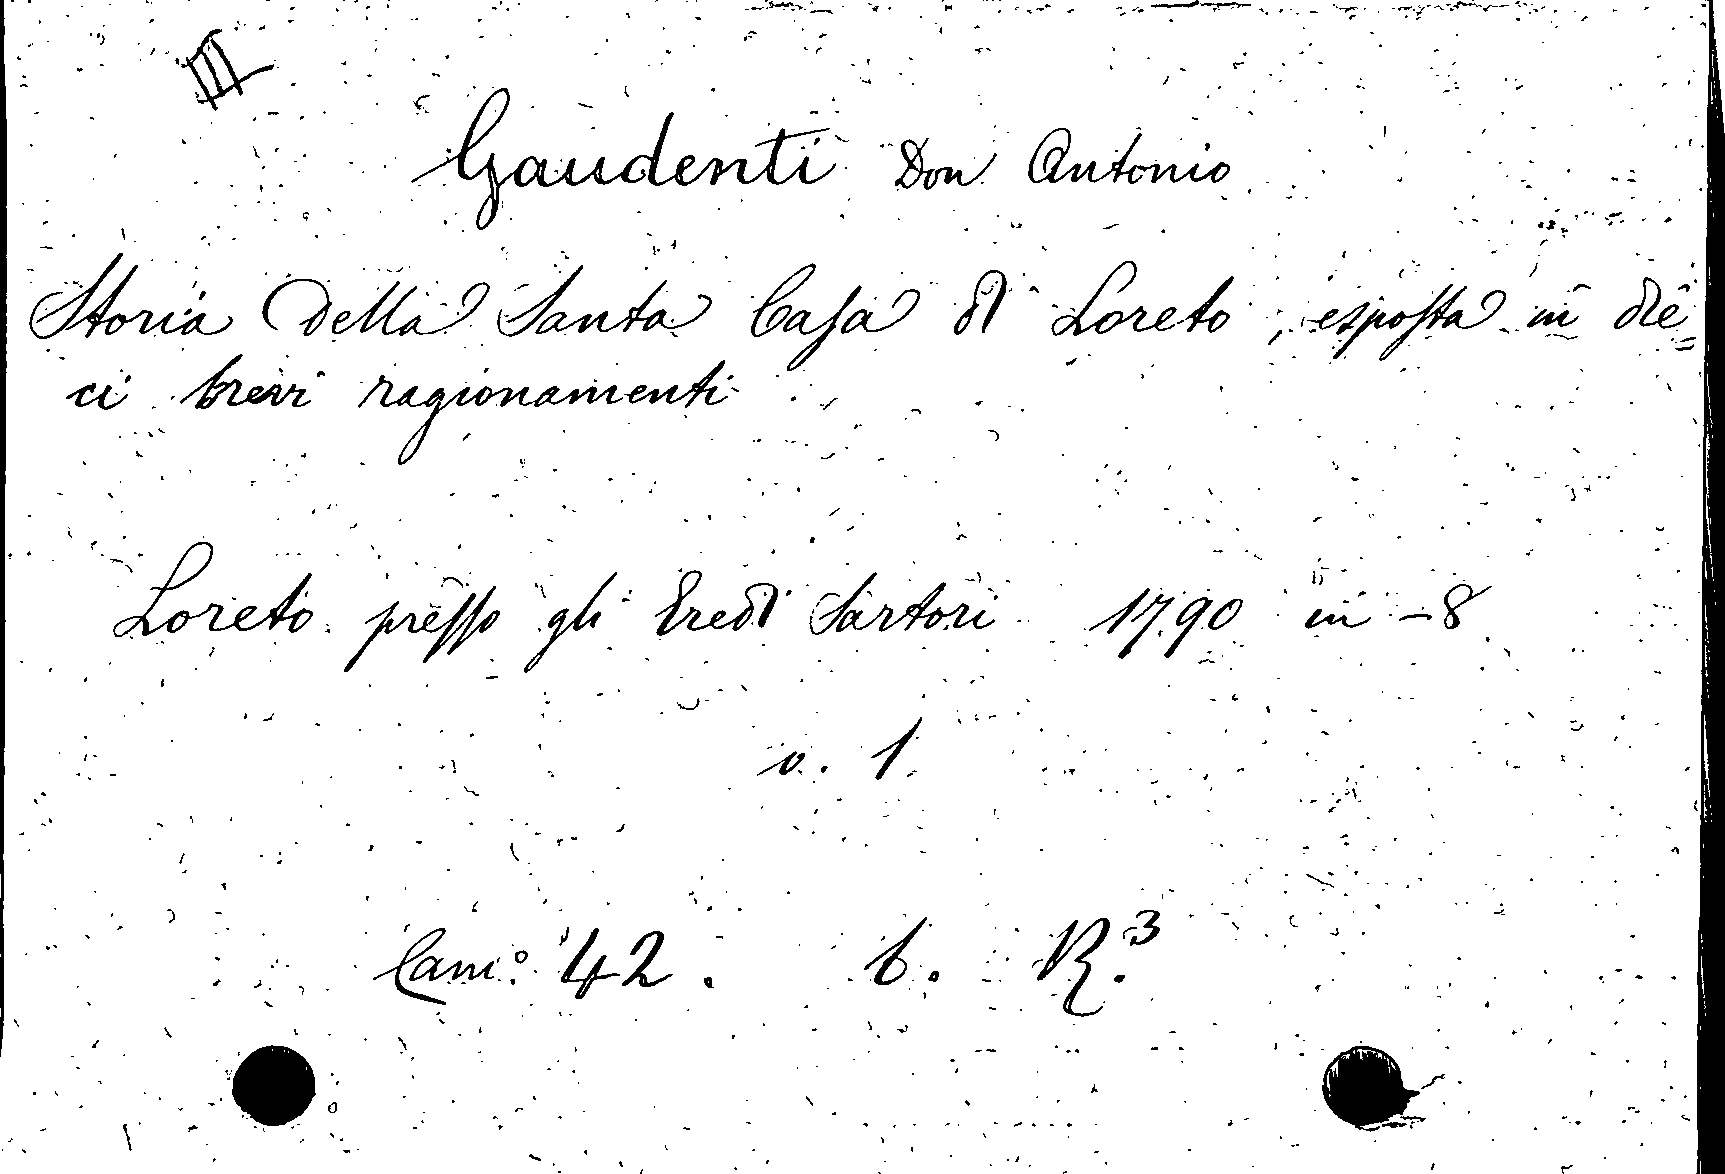 III
Gaudenti Don Antonio
Storia della Santa Casa di Loreto, esposta in die=
ci brevi ragionamenti
Loreto presso gli Eredi Sartori 1790 in - 8
v. 1
Cam:° 42. b. R.³